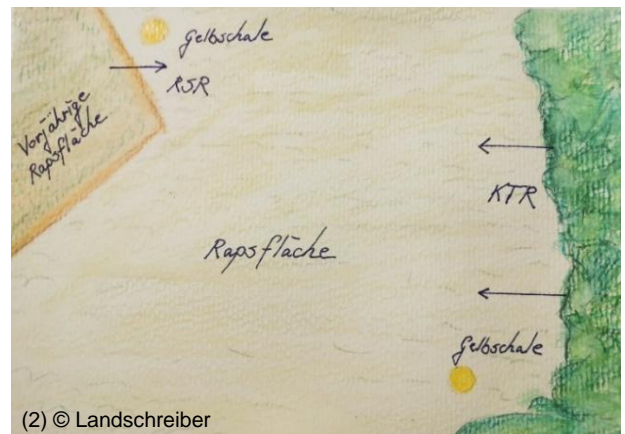 Gelbschale
RSR
Vorjährige
Rapsfläche
KTR
Rapsfläche
Gelbschale
(2) © Landschreiber